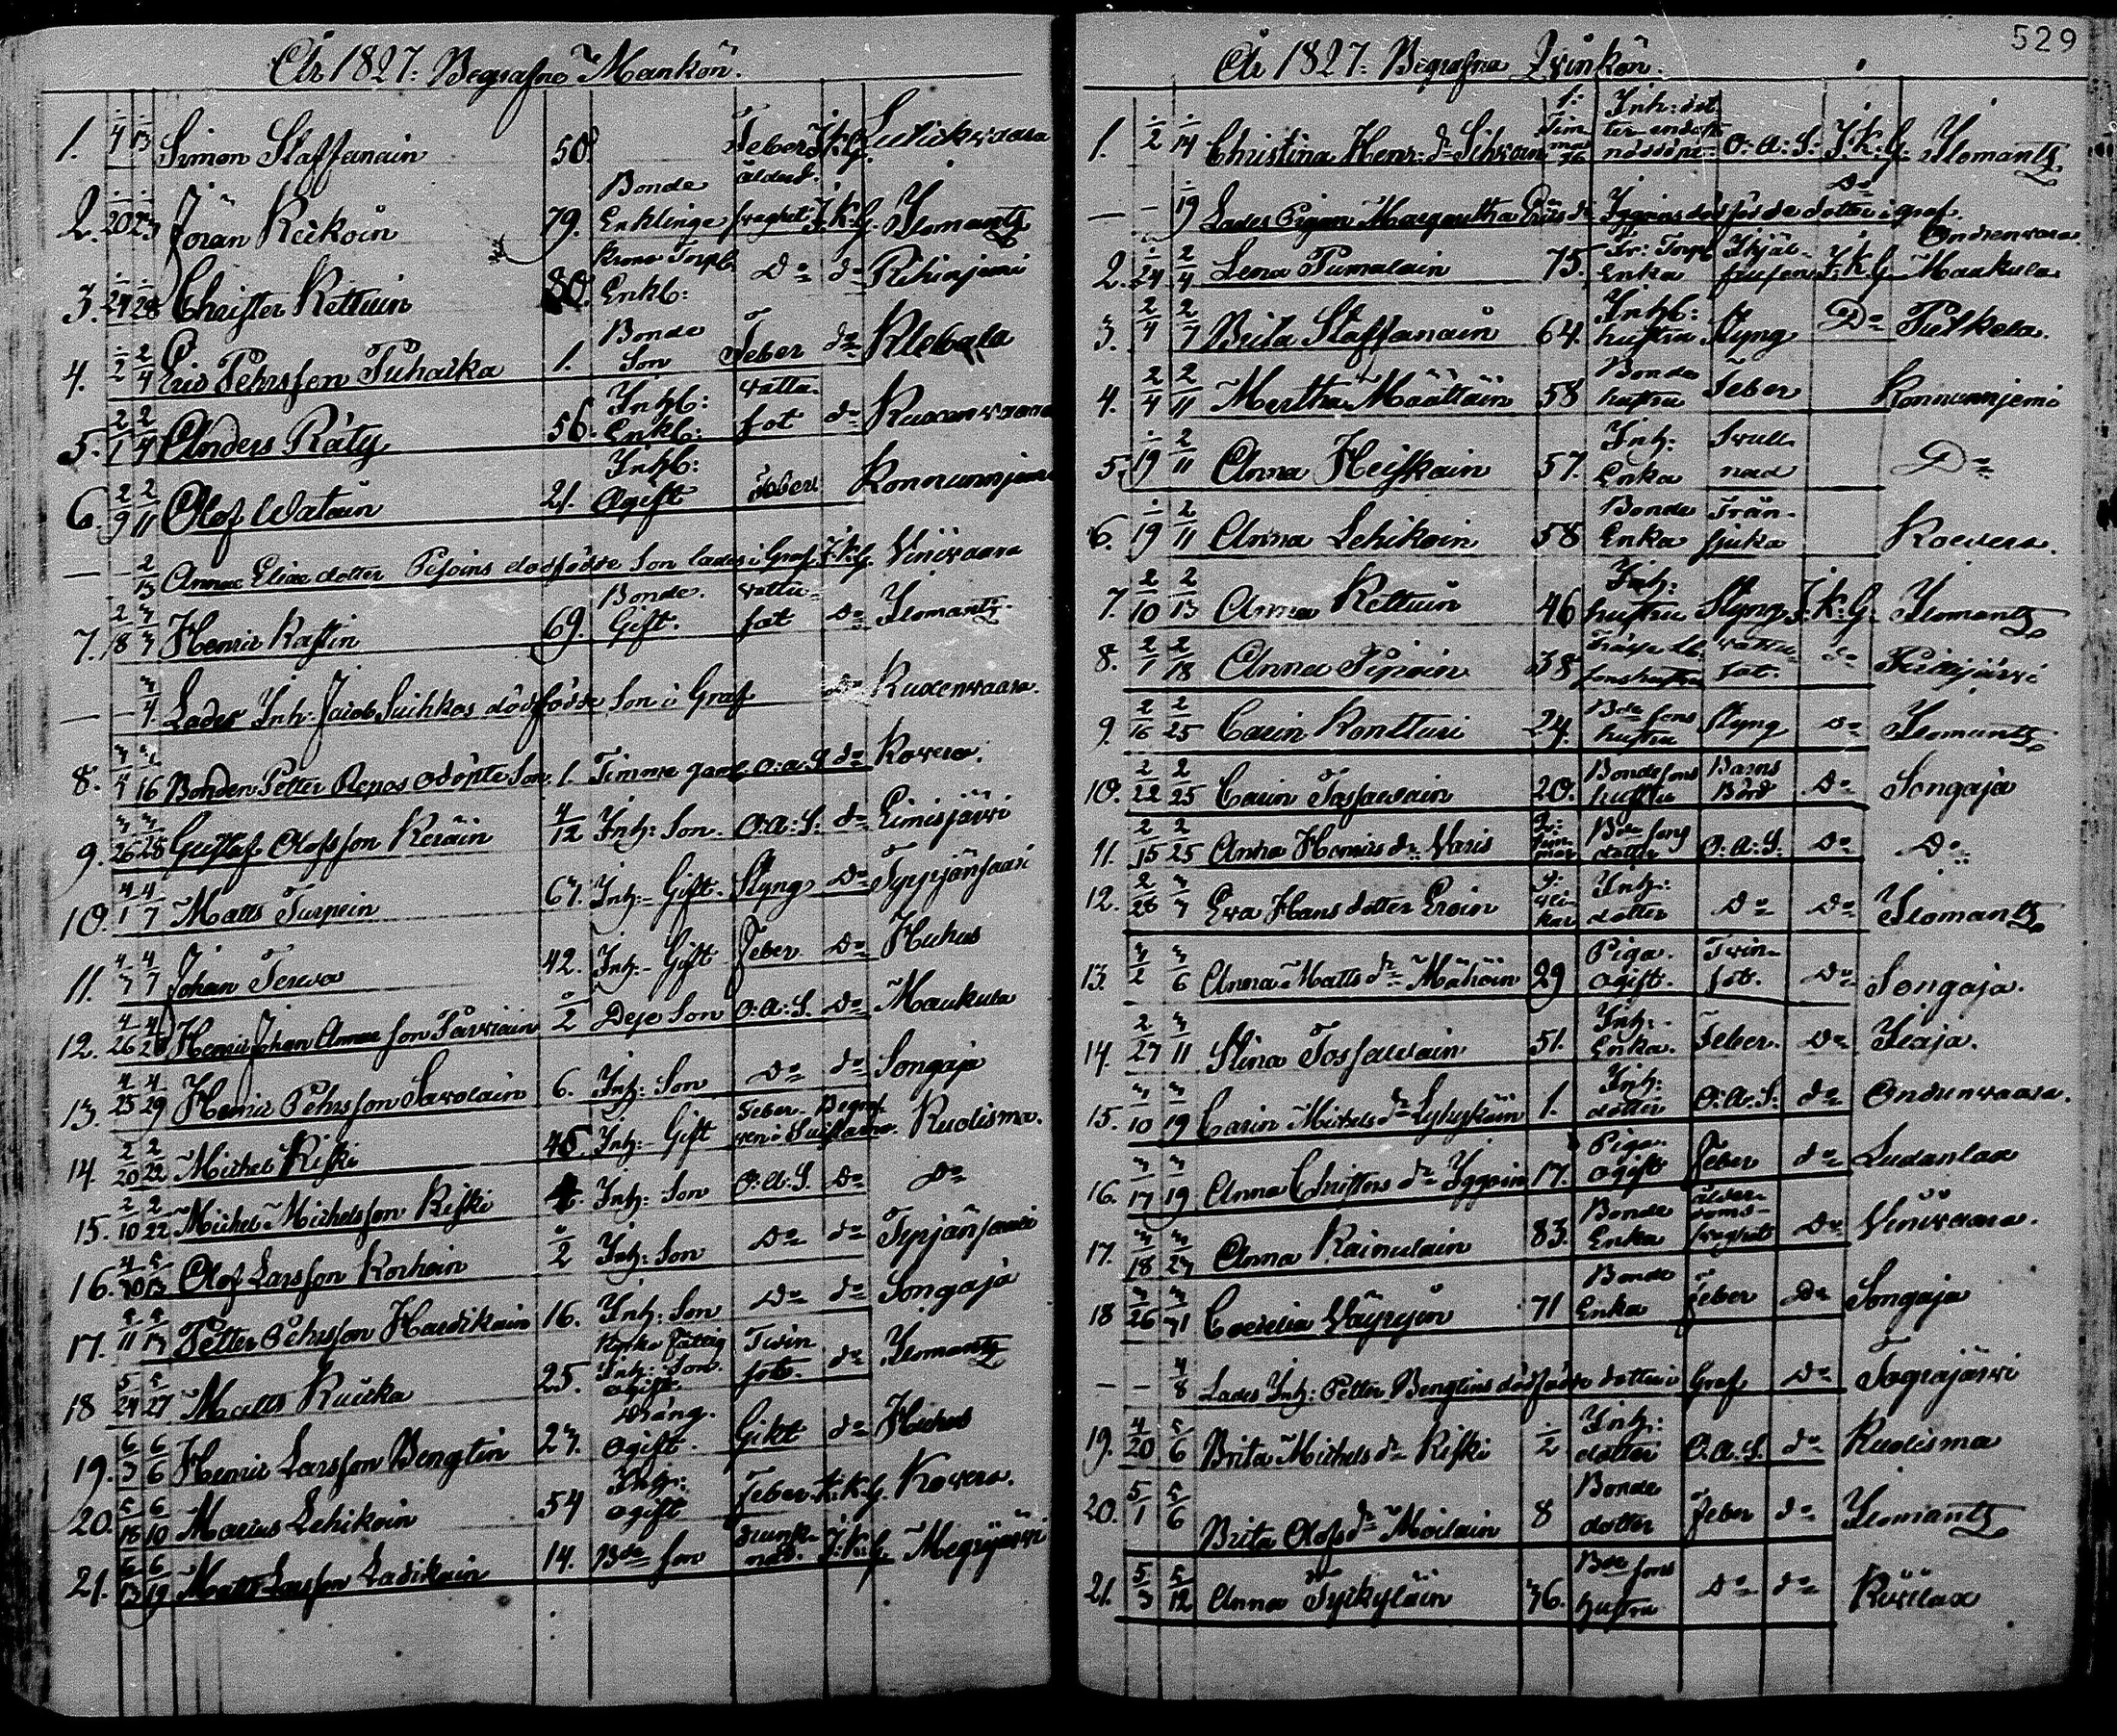 529
År 1827: Begrafne Mankön.
1. 1/4 1/13 Simon Staffanain 50. Feber J.k.G.
2. 1/20 1/23 Jöran Keikoin 79. Bonde Enklinge ålderd. fraghet J.k.G. Ilomants
3. 1/24 1/28 Christer Kettuin 80. Krono Torpb. Enkl: Do do Rihinjemi
4. 1/2 2/4 Eric Pehrsson Puharka 1. Bonde Son Feber do
5. 2/1 2/4 Anders Räty 56. Inhb: Enkl: watta- sot do Kuxenwaara
6. 2/9 2/11 Olof Watain 21. Inhb: Ogift Feber Konnunnjemi
— — 2/13 Annae Eliae dotter Pesoins dödfödde Son lades i Graf J.k.G. Winiwaara
7. 2/18 3/3 Henric Kassin 69. Bonde. Gift. wattu- sot Do Ilomants.
— — 3/4 Lades Inh: Jacob Suihkos dödfödde Son i Graf Do Kuxenwaara.
8. 3/4 3/16 Bonden Petter Repos odöpte Son 1 Timme gam: o.a.S do Kowero.
9. 3/26 3/28 Gustaf Olofsson Keräin 4/12 Inh: Son. O.A:S. do Limisjärvi
10. 4/1 4/7 Matts Turpein 67. Inh:- Gift. Styng Do
11. 4/3 4/7 Johan Terwa 42. Inh:- Gift Feber Do Huhus
12. 4/26 4/28 Henric Johan Annae son Parviain 1/2 Deje Son O:A:S. Do Maukula
13. 4/25 4/29 Henric Pehrsson Sawolain 6. Inh: Son Do do Songaja
14. 2/20 2/22 Michel Kiski 45. Inh:- Gift Feber Begraf- ven i Suistamo. Kuolisma.
15. 2/10 2/22 Michel Michelsson Kiski Inh: Son O.A.S. Do Do
16. 4/30 5/13 Olof Larsson Korhoin 1/2 Inh: Son Do do
17. 5/11 5/13 Petter Pehrsson Hauikain 16. Inh: Son Do do Songaja
18 5/24 5/27 Matts Kuikka 25. Kyrko fattig Inh: Son. ogift. Twin sot. do Ilomants
19. 6/3 6/6 Henric Larsson Bengtin 23. dräng. Ogift. Gikt do Huhus
20. 5/18 6/10 Marcus Lehikoin 54 Inh: ogift Feber k.k.G. Kowero.
21. 6/13 6/19 Matts Larsson Ladikain 14. Bde son drunk- nad. J.k.G. Megrijärvi
År 1827: Begrafna Qvinkön.
1. 1/2 1/14 Christina Henr: dr Sihvoin 1: Tim- ma Inh: dot ter endast nöddöpt O:A:S: J.k.G. Ilomants
— — 1/19 Lades Pigan Margaretha Eriks dr Iggoins dödfödde dotter i graf. Do Ondrenvaara.
2. 1/24 2/4 Lena Pumalain 75. Kr: Torpb Enka J.k.G. Maukula
3. 2/4 2/7 Brita Staffanain 64. Inhb: hustru Styng Do Putkela.
4. 2/4 2/11 Mertha Määttäin 58 Bonde hustru Feber Konnunnjemi
5. 1/19 2/11 Anna Heiskain 57. Inh: Enka Svull- nad Do
6. 1/19 2/11 Anna Lehikoin 58 Bonde Enka Trån- sjuka Kowero.
7. 2/10 2/13 Anna Kettuin 46 Inh: hustru Styng J.k.G. Ilomants
8. 2/1 2/18 Anna Piipoin 38 sonshustru wattu- sot. do
9. 2/16 2/25 Carin Kontturi 24. Bde sons hustru Styng Do Ilomants
10. 2/22 2/25 Carin Tossawain 20. Bondesons hustru Barns Börd Do Songaja
11. 2/15 2/25 Anna Henrics dr Waris Bde sons dotter O.A.S. Do Do
12. 2/28 3/3 Eva Hans dotter Eroin 3: vei- kor Inh: dotter Do Do Ilomants
13. 3/2 3/6 Anna Matts dr Mähöin 29 Piga. ogift. Twin- sot. Do Songaja.
14. 2/27 3/11 Stina Tossawain 51. Inh:- Enka. Feber. Do Ilaja.
15. 3/10 3/19 Carin Michels dr Lyhykäin 1. Inh: dotter O.A.S. do Ondrenvaara.
16. 3/17 3/19 Anna Christers dr Iggoin 17. Piga ogift Feber do Ludanlax
17. 3/18 3/23 Anna Kainulain 83. Bonde Enka ålder- doms- fraghet Do Winiwaara.
18 3/26 3/31 Coecilia Wäyryin 71 Bonde Enka Feber Do Songaja
— — 4/8 Lades Inh: Petter Bengtins dödfödde dotter i Graf Do Tograjärvi
19. 4/20 5/6 Brita Michels dr Kiski 1/2 Inh: dotter O.A.S. do Kuolisma
20. 5/1 5/6 Brita Olofs dr Moilain 8 Bonde dotter Feber do Ilomants
21. 5/3 5/12 Anna Tyrkyläin 36. Bde sons hustru Do do